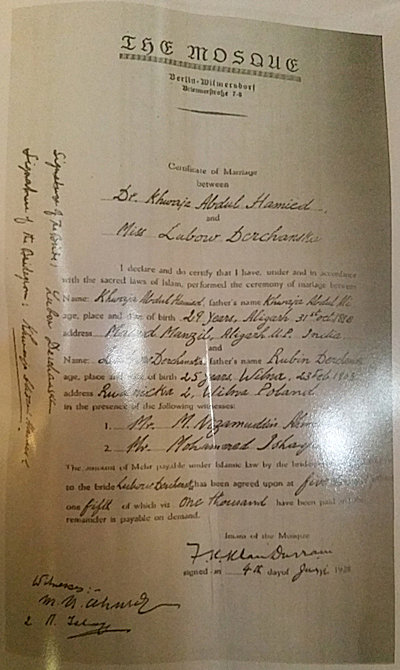 THE MOSQUE
Berlin-Wilmersdorf
Briennerstraße 7-8
Certificate of Marriage
between
Dr. Khwaja Abdul Hamied,
and
Miss Lubow Derchanska
I declare and do certify that I have, under and in accordance
with the sacred laws of Islam, performed the ceremony of marriage between
Name: Khwaja Abdul Hamied, father's name Khwaja Abdul Ali
age, place and date of birth 29 years, Aligarh 31st Oct
address Manzil, Aligarh U.P. India
and
Name: Derchanska, father's name Rubin
age, place and date of birth 25 years, Wilna, 23 Feb
address 2, Wilna Poland
in the presence of the following witnesses:
1. Mr. M. Nizamuddin
2 Mr. Mohammad
The amount of Mehr payable under Islamic law by the
to the bride Lubow Derchanska has been agreed upon at five
one fifth of which viz one thousand have been paid
remainder is payable on demand.
Imam of the Mosque
signed on 4th day of
Witnesses:-
M. N. Ahmed
2
Signature of the Bride: Luba Derchanska
Signature of the Bridegroom: Khwaja Abdul Hamied